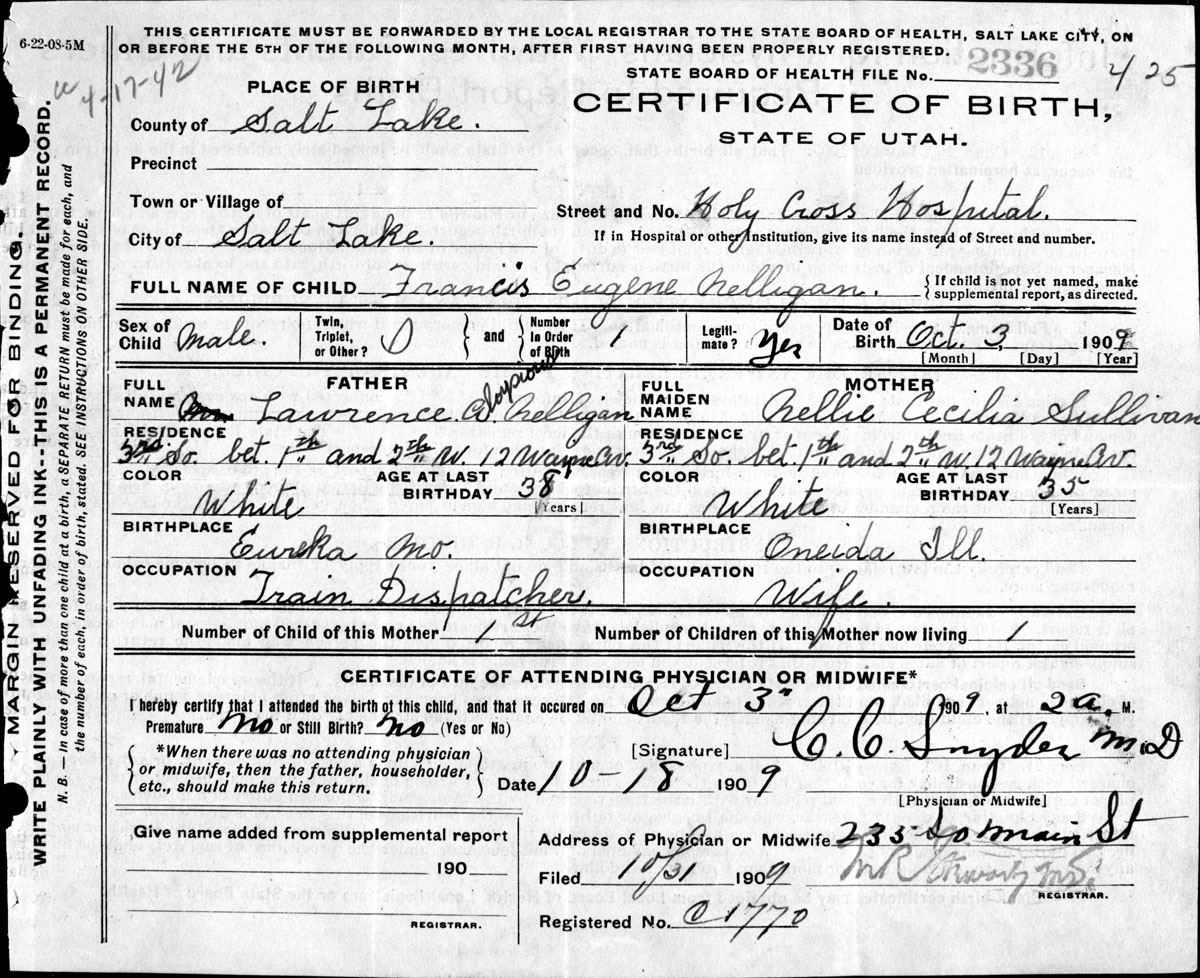 6-22-08-5M
THIS CERTIFICATE MUST BE FORWARDED BY THE LOCAL REGISTRAR TO THE STATE BOARD OF HEALTH, SALT LAKE CITY, ON
OR BEFORE THE 5TH OF THE FOLLOWING MONTH, AFTER FIRST HAVING BEEN PROPERLY REGISTERED.
4-17-42
STATE BOARD OF HEALTH FILE No. 2336
425
PLACE OF BIRTH
CERTIFICATE OF BIRTH,
STATE OF UTAH.
County of Salt Lake.
Precinct
Town or Village of
Street and No. Holy Cross Hospital.
City of Salt Lake.
If in Hospital or other Institution, give its name instead of Street and number.
FULL NAME OF CHILD Francis Eugene Nelligan.
{ If child is not yet named, make
supplemental report, as directed.
Sex of Child Male.
Twin, Triplet, or Other? 0 } and { Number In Order of Birth 1
Legiti-mate? Yes
Date of Birth Oct. 3, 1909
[Month] [Day] [Year]
FATHER
FULL NAME Lawrence A. Nelligan
Aloysious
RESIDENCE
3rd. So. bet. 1th and 2th W. 12 Wayne Av.
COLOR White
AGE AT LAST BIRTHDAY 38
[Years]
BIRTHPLACE Eureka Mo.
OCCUPATION Train Dispatcher.
MOTHER
FULL MAIDEN NAME Nellie Cecilia Sullivan
RESIDENCE
3rd. So. bet. 1th and 2th W. 12 Wayne Av.
COLOR White
AGE AT LAST BIRTHDAY 35
[Years]
BIRTHPLACE Oneida Ill.
OCCUPATION Wife.
Number of Child of this Mother 1st Number of Children of this Mother now living 1
CERTIFICATE OF ATTENDING PHYSICIAN OR MIDWIFE*
I hereby certify that I attended the birth of this child, and that it occured on Oct 3" 1909, at 2 a. M.
Premature? No or Still Birth? No (Yes or No)
{ *When there was no attending physician
or midwife, then the father, householder,
etc., should make this return. }
[Signature] C. C. Snyder M.D
Date 10-18 1909
[Physician or Midwife]
Give name added from supplemental report
190
REGISTRAR.
Address of Physician or Midwife 235 So. Main St
Filed 10/31 1909
REGISTRAR.
Registered No. C1770
MARGIN RESERVED FOR BINDING.
WRITE PLAINLY WITH UNFADING INK--THIS IS A PERMANENT RECORD.
N. B. — In case of more than one child at a birth, a SEPARATE RETURN must be made for each, and
the number of each, in order of birth, stated. SEE INSTRUCTIONS ON OTHER SIDE.